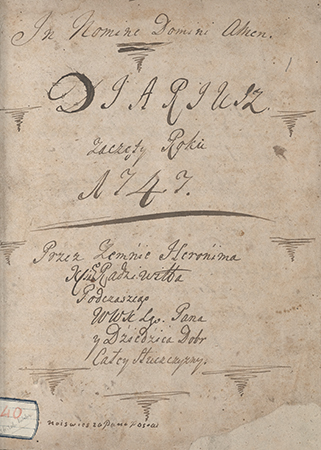 In Nomine Domini Amen.
DIARIUSZ
zaczęty Roku
1747.
Przez Zemnie Hieronima
Xże Radziwiłła
Podczaszego
WWXLgo. Pana
y Dziedzica Dobr
Całey Słucczyzny.
40.